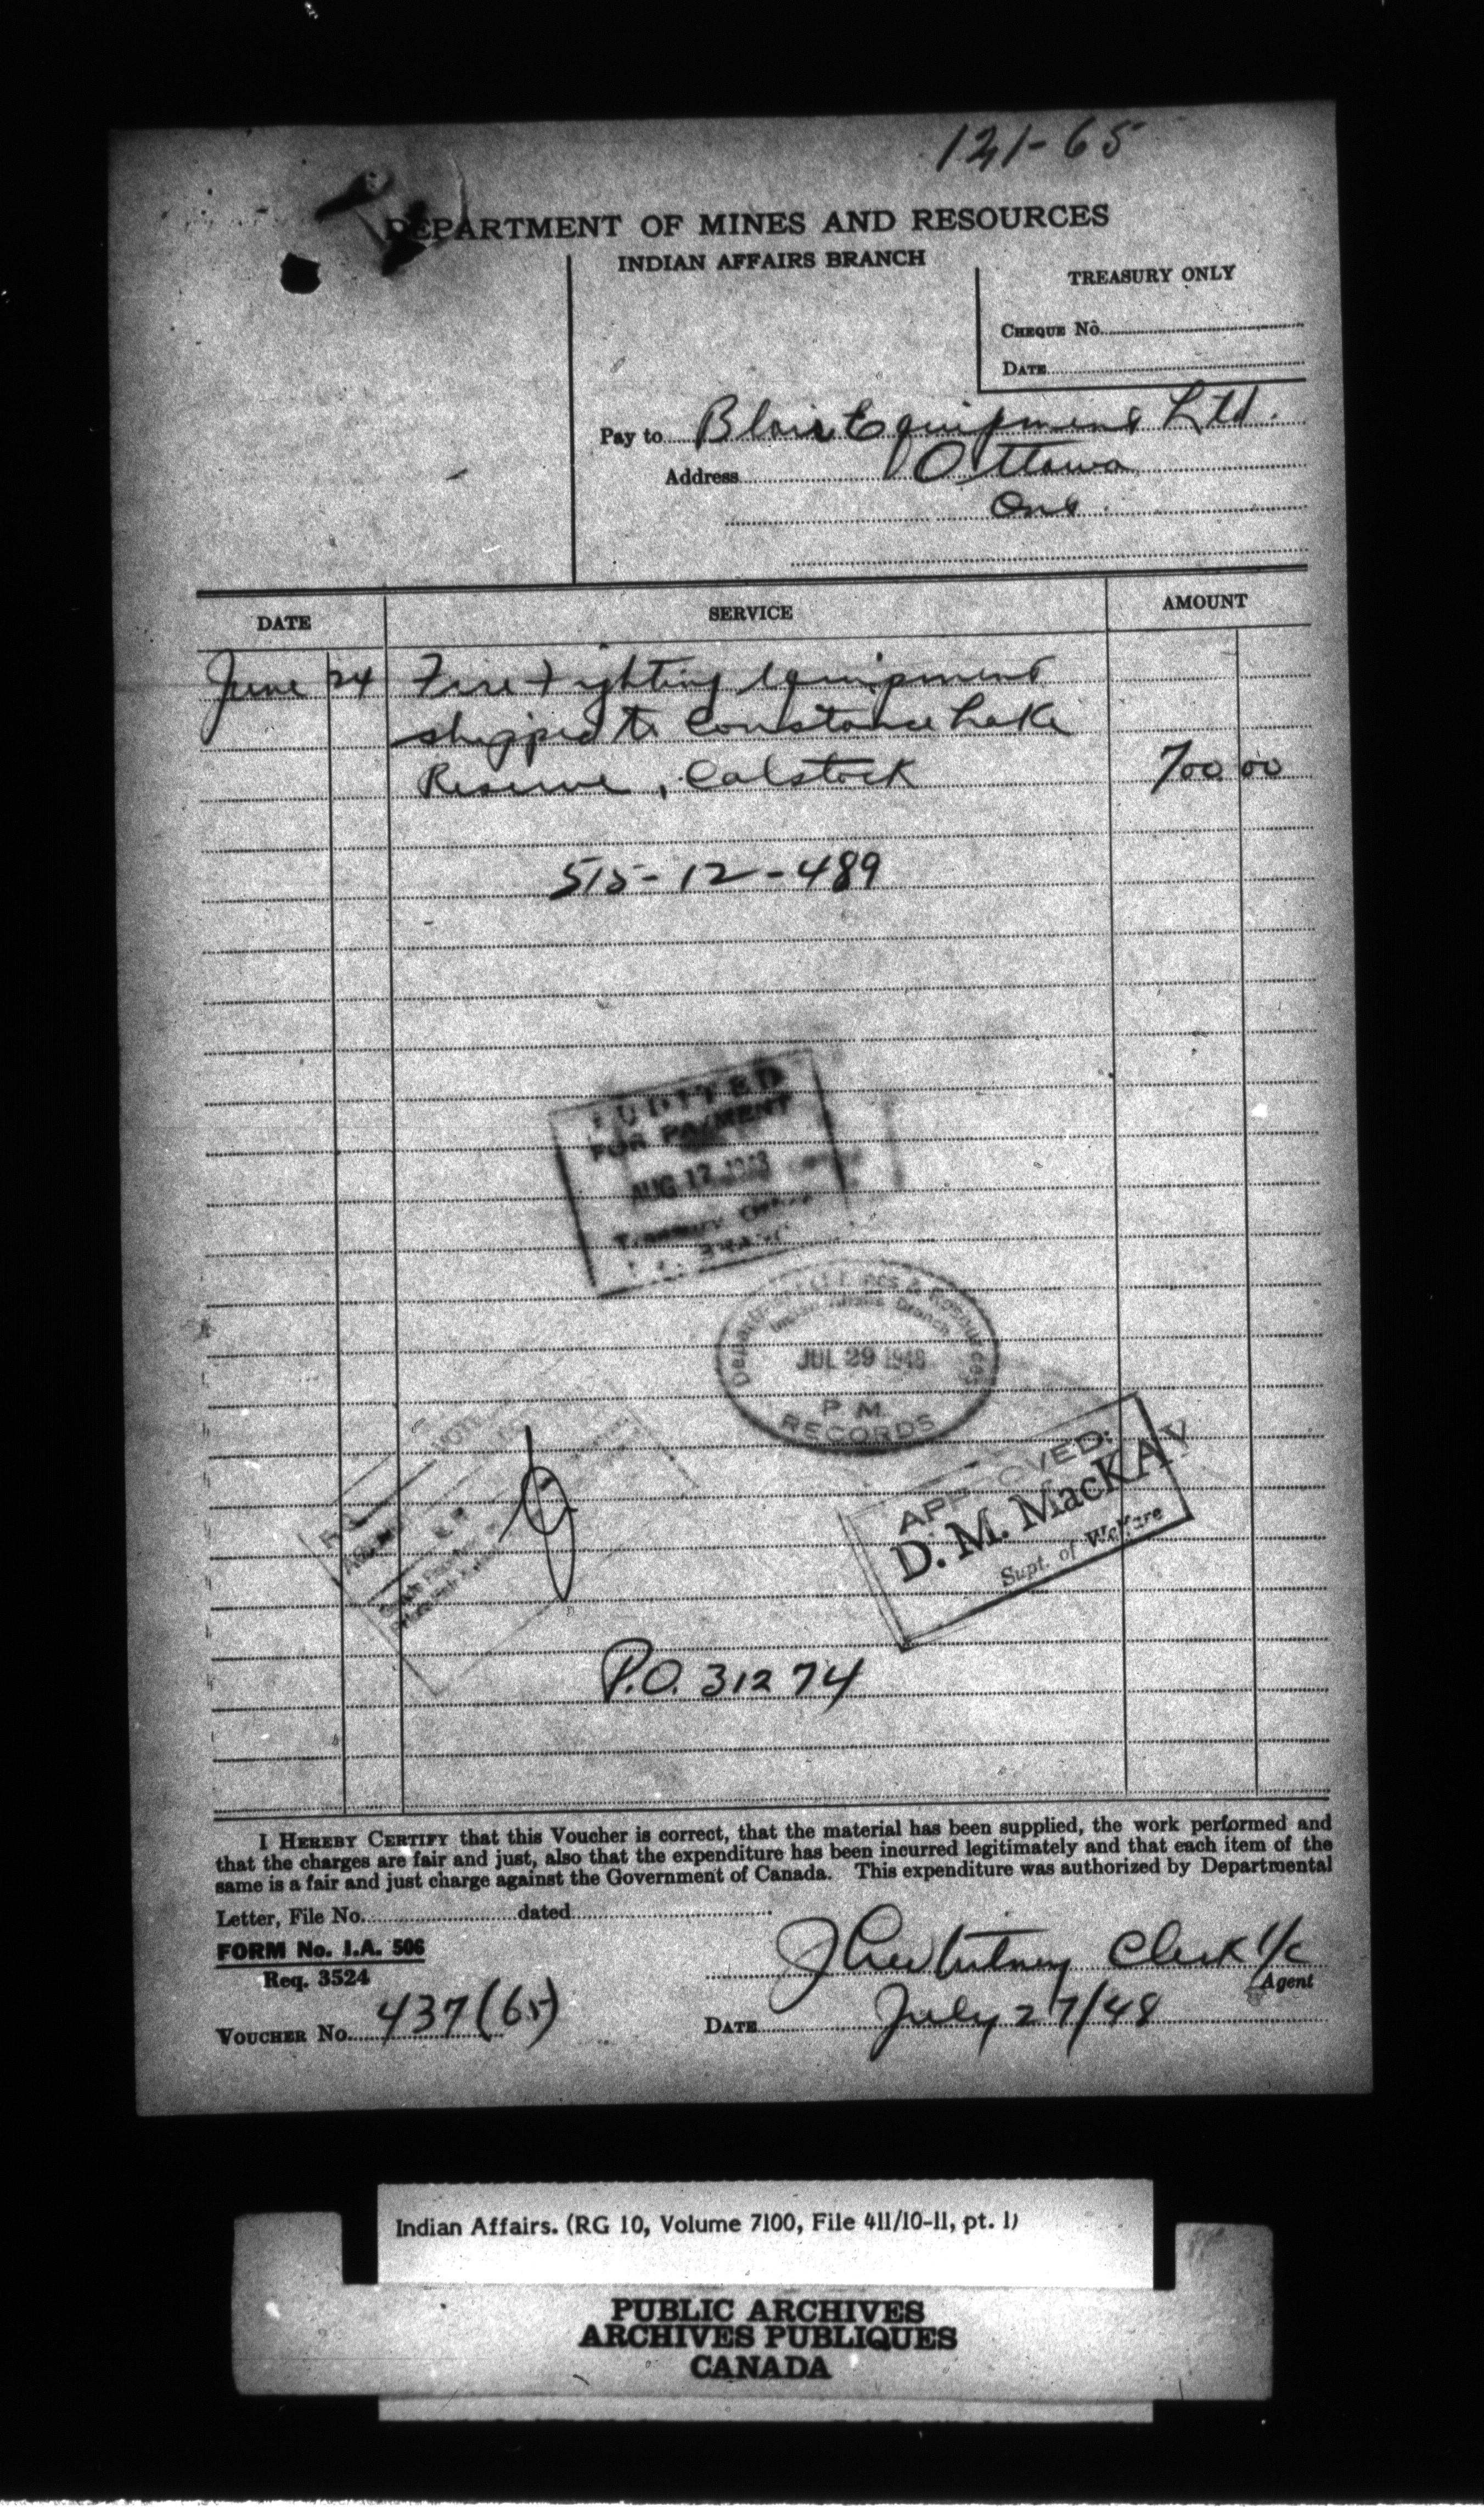 121-65
DEPARTMENT OF MINES AND RESOURCES
INDIAN AFFAIRS BRANCH
TREASURY ONLY
CHEQUE No.
DATE
Pay to Blair Equipment Ltd.
Address Ottawa
Ont
DATE SERVICE AMOUNT
June 24 Fire Fighting Equipment
shipped to Constance Lake
Reserve, Calstock 700 00
515-12-489
AUDITED
FOR PAYMENT
AUG 17 1948
Department of Mines & Resources
Indian Affairs Branch
JUL 29 1948
P. M.
RECORDS
APPROVED:
D. M. MacKAY
Supt. of Welfare
P.O. 31274
I HEREBY CERTIFY that this Voucher is correct, that the material has been supplied, the work performed and
that the charges are fair and just, also that the expenditure has been incurred legitimately and that each item of the
same is a fair and just charge against the Government of Canada. This expenditure was authorized by Departmental
Letter, File No. dated
FORM No. I.A. 506
Req. 3524
Clerk I/c
Agent
VOUCHER No. 437(65)
DATE July 27/48
Indian Affairs. (RG 10, Volume 7100, File 411/10-11, pt. 1)
PUBLIC ARCHIVES
ARCHIVES PUBLIQUES
CANADA